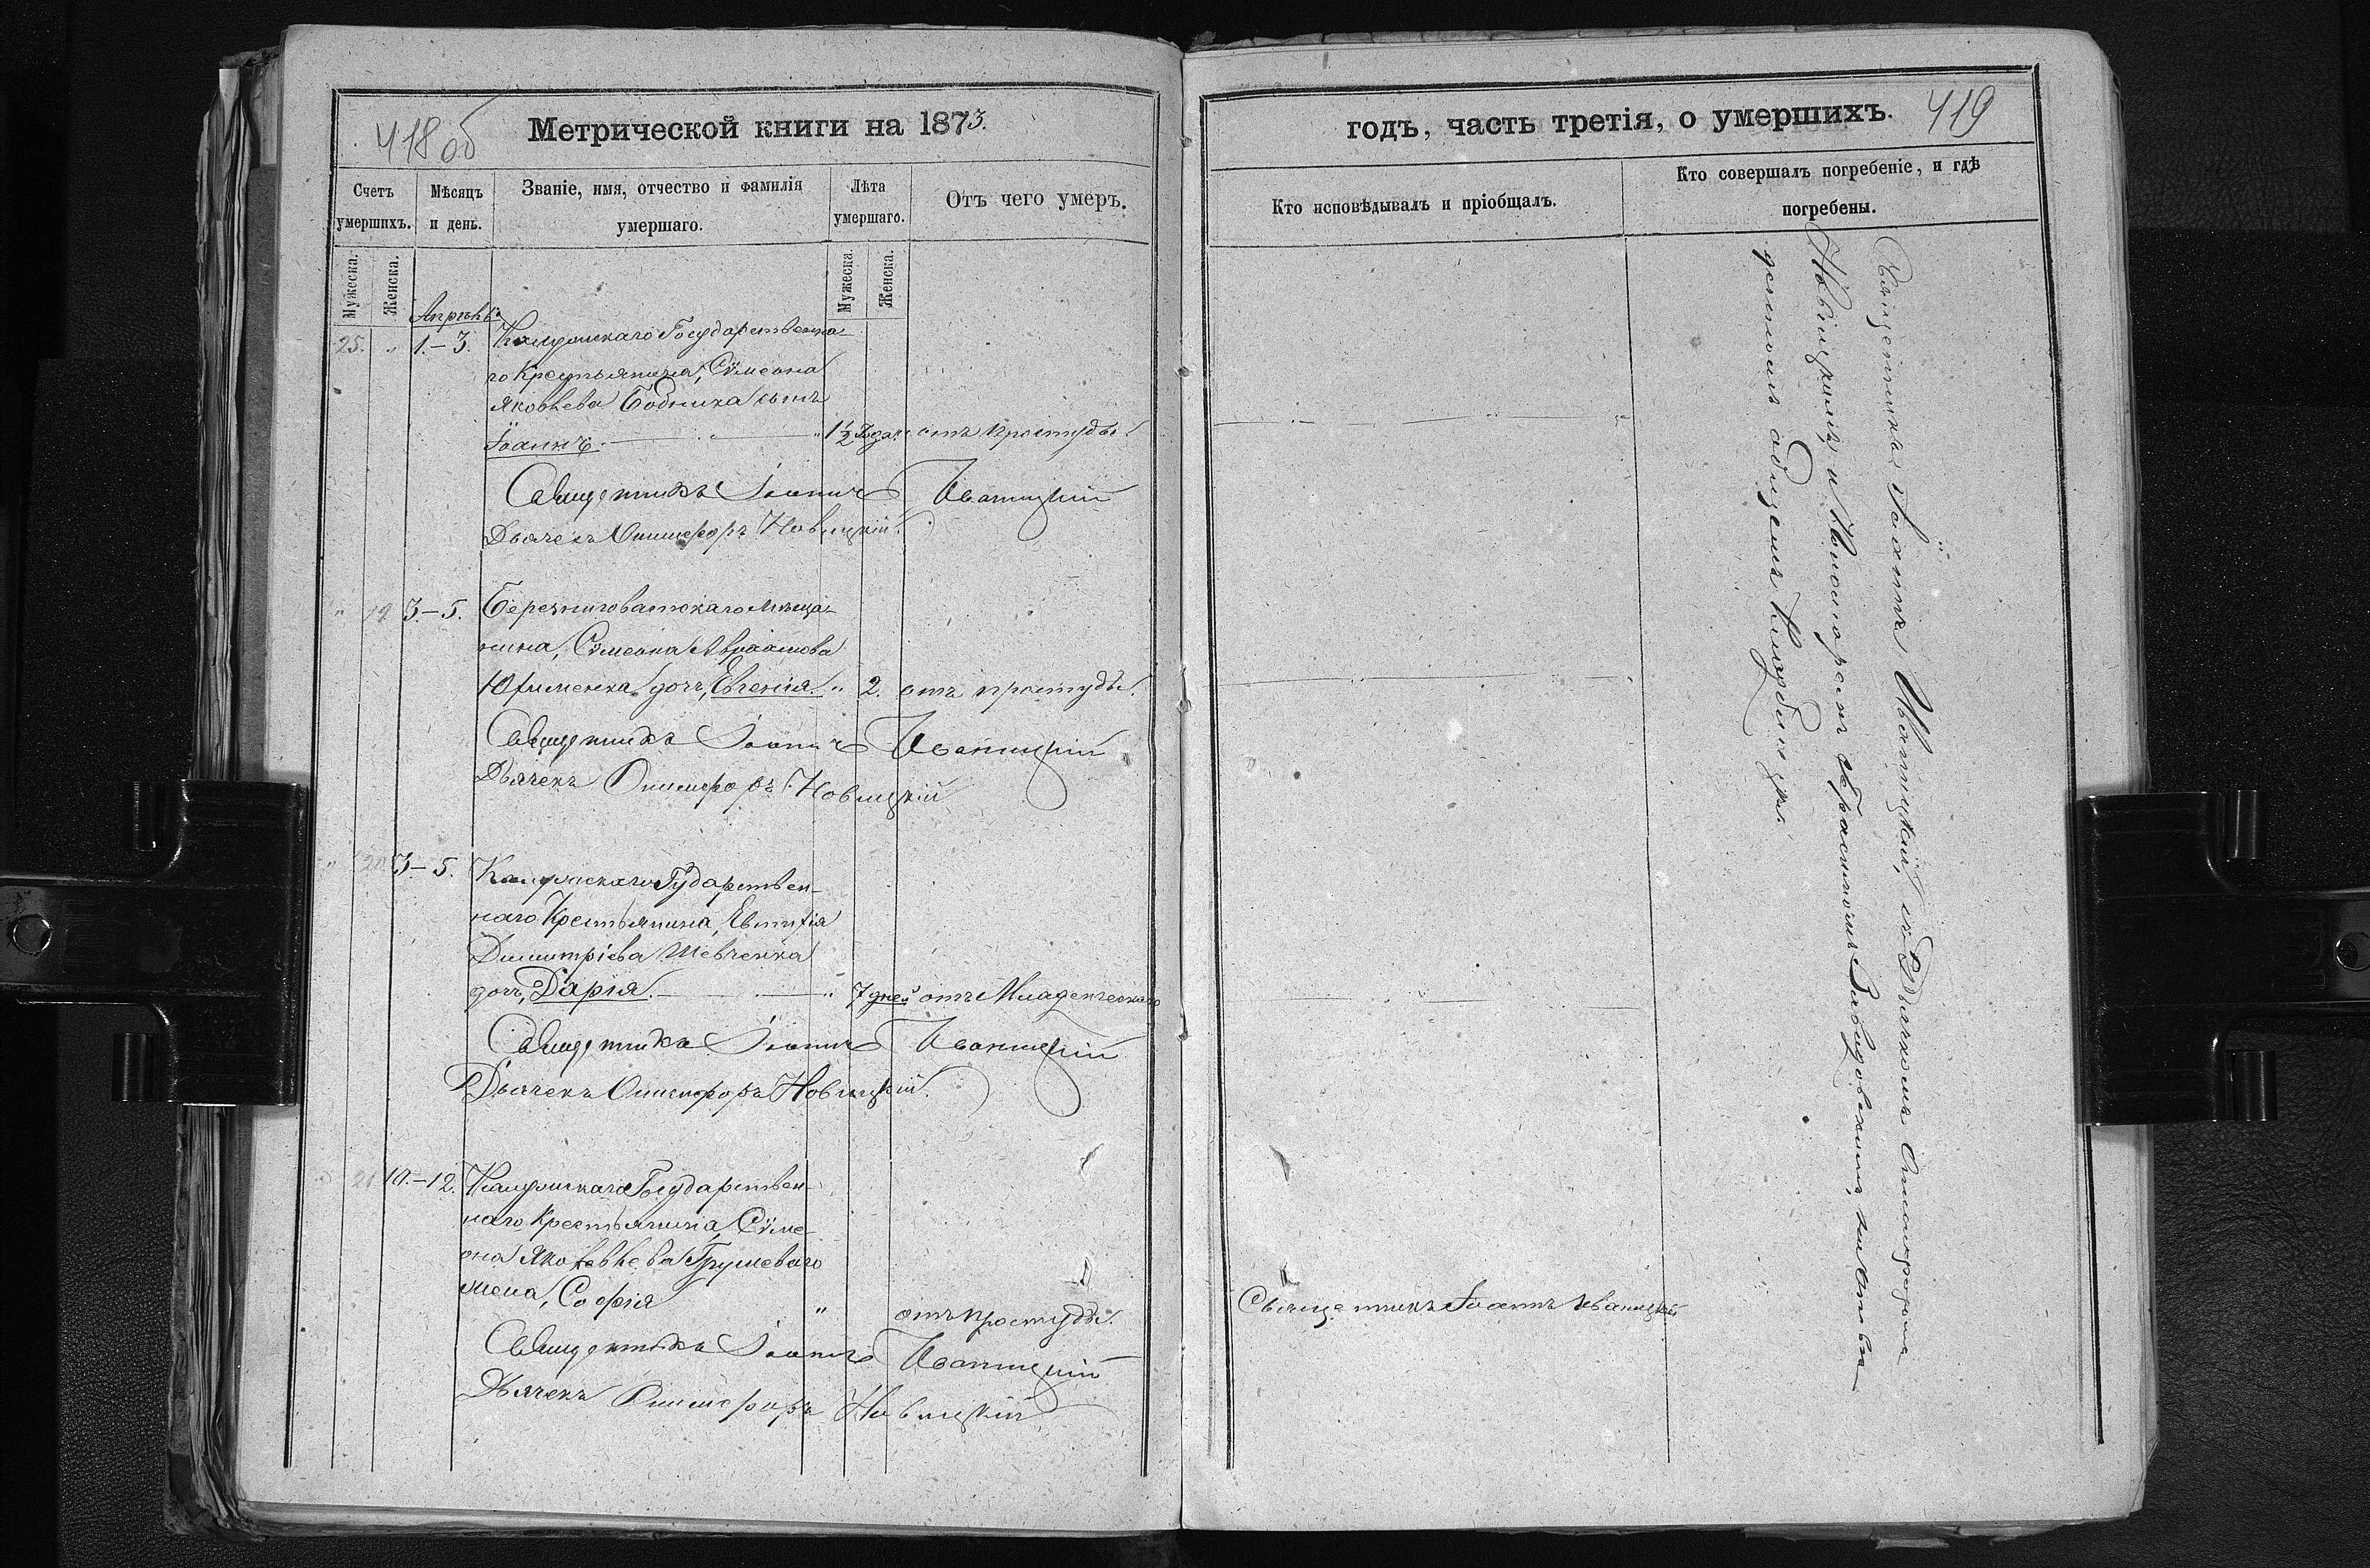 418 об
Метрической книги на 1873.
Счетъ умершихъ.
Мѣсяцъ и день.
Званіе, имя, отчество и фамилія умершаго.
Лѣта умершаго.
Отъ чего умеръ.
Мужеска.
Женска.
Мужеска.
Женска.
Апрѣль
25. " 1.-3. Государственна-
го Крестьянина, Сѵмеона
Яковлева Бодника сынъ
Іоаннъ. " 1½ года. отъ простуды.
Священникъ Іоаннъ Иваницкій
Дьячекъ Онисифоръ Новицкій.
" 19 3-5. Березниговатскаго Мѣща-
нина, Сѵмеона Авраамова
Юхименка дочь, Евгенія. " 2. отъ простуды.
Священникъ Іоаннъ Иваницкій
Дьячекъ Онисифоръ Новицкій
" 20 3-5. Гударствен-
наго Крестьянина, Евтихія
Димитріева Шевченка
дочь, Дарія. " 7 дней отъ Младенческаго
Священникъ Іоаннъ Иваницкій
Дьячекъ Онисифоръ Новицкій.
" 21 10.-12. Государствен-
наго Крестьянина, Сѵме-
она Яковлева Грушеваго
жена, Софія " отъ простуды.
Священникъ Іоаннъ Иваницкій
Дьячекъ Онисифоръ Новицкій
годъ, часть третія, о умершихъ.
419
Кто исповѣдывалъ и пріобщалъ.
Кто совершалъ погребеніе, и гдѣ погребены.
Священникъ Іоаннъ Иваницкій
Священникъ Іоаннъ Иваницкій, съ Дьячкомъ Онисифоромъ
Новицкимъ и Пономаремъ на
общемъ Кладбищѣ.